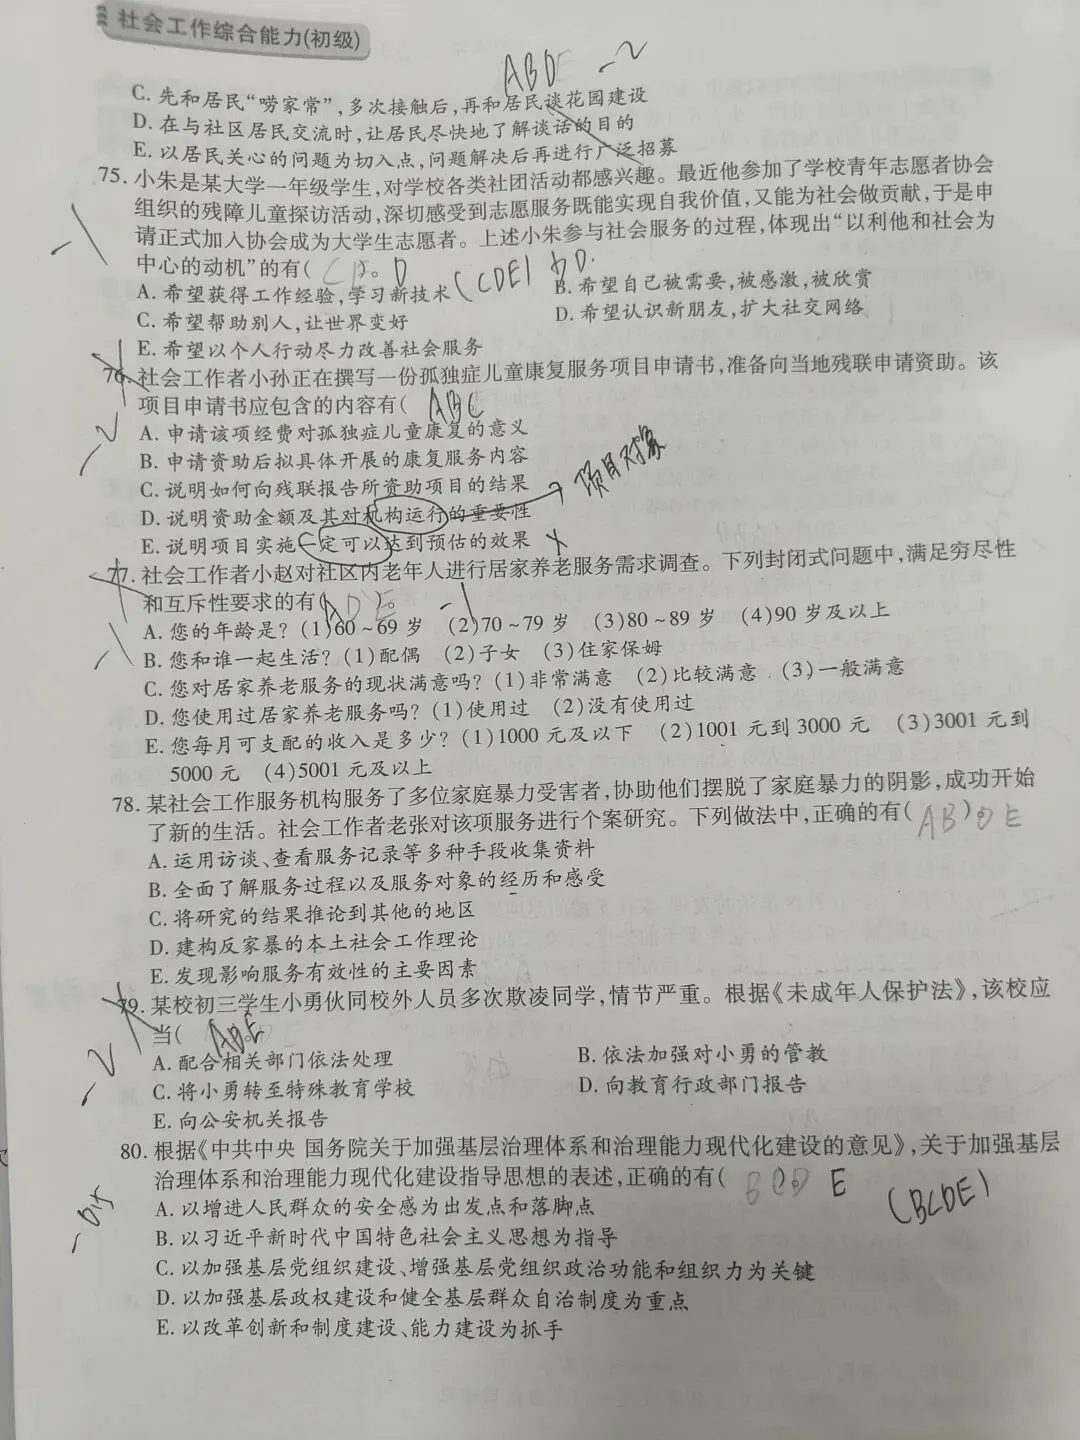 社会工作综合能力(初级)
ABDE -2
C. 先和居民“唠家常”,多次接触后,再和居民谈花园建设
D. 在与社区居民交流时,让居民尽快地了解谈话的目的
E. 以居民关心的问题为切入点,问题解决后再进行广泛招募
75. 小朱是某大学一年级学生,对学校各类社团活动都感兴趣。最近他参加了学校青年志愿者协会
组织的残障儿童探访活动,深切感受到志愿服务既能实现自我价值,又能为社会做贡献,于是申
请正式加入协会成为大学生志愿者。上述小朱参与社会服务的过程,体现出“以利他和社会为
中心的动机”的有( )。D (CDE) BD.
A. 希望获得工作经验,学习新技术 B. 希望自己被需要,被感激,被欣赏
C. 希望帮助别人,让世界变好 D. 希望认识新朋友,扩大社交网络
E. 希望以个人行动尽力改善社会服务
76. 社会工作者小孙正在撰写一份孤独症儿童康复服务项目申请书,准备向当地残联申请资助。该
项目申请书应包含的内容有( ABC )。
-2
A. 申请该项经费对孤独症儿童康复的意义
B. 申请资助后拟具体开展的康复服务内容
C. 说明如何向残联报告所资助项目的结果
D. 说明资助金额及其对机构运行的重要性 → 项目对象
E. 说明项目实施一定可以达到预估的效果 ×
77. 社会工作者小赵对社区内老年人进行居家养老服务需求调查。下列封闭式问题中,满足穷尽性
和互斥性要求的有( ADE )。 -1
A. 您的年龄是?(1)60~69岁 (2)70~79岁 (3)80~89岁 (4)90岁及以上
B. 您和谁一起生活?(1)配偶 (2)子女 (3)住家保姆
C. 您对居家养老服务的现状满意吗?(1)非常满意 (2)比较满意 (3)一般满意
D. 您使用过居家养老服务吗?(1)使用过 (2)没有使用过
E. 您每月可支配的收入是多少?(1)1000元及以下 (2)1001元到3000元 (3)3001元到
5000元 (4)5001元及以上
78. 某社会工作服务机构服务了多位家庭暴力受害者,协助他们摆脱了家庭暴力的阴影,成功开始
了新的生活。社会工作者老张对该项服务进行个案研究。下列做法中,正确的有( ABDE )。
A. 运用访谈、查看服务记录等多种手段收集资料
B. 全面了解服务过程以及服务对象的经历和感受
C. 将研究的结果推论到其他的地区
D. 建构反家暴的本土社会工作理论
E. 发现影响服务有效性的主要因素
79. 某校初三学生小勇伙同校外人员多次欺凌同学,情节严重。根据《未成年人保护法》,该校应
当( ADE )。
-2
A. 配合相关部门依法处理 B. 依法加强对小勇的管教
C. 将小勇转至特殊教育学校 D. 向教育行政部门报告
E. 向公安机关报告
80. 根据《中共中央 国务院关于加强基层治理体系和治理能力现代化建设的意见》,关于加强基层
治理体系和治理能力现代化建设指导思想的表述,正确的有( BCD )。 E (BCDE)
A. 以增进人民群众的安全感为出发点和落脚点
B. 以习近平新时代中国特色社会主义思想为指导
C. 以加强基层党组织建设、增强基层党组织政治功能和组织力为关键
D. 以加强基层政权建设和健全基层群众自治制度为重点
E. 以改革创新和制度建设、能力建设为抓手